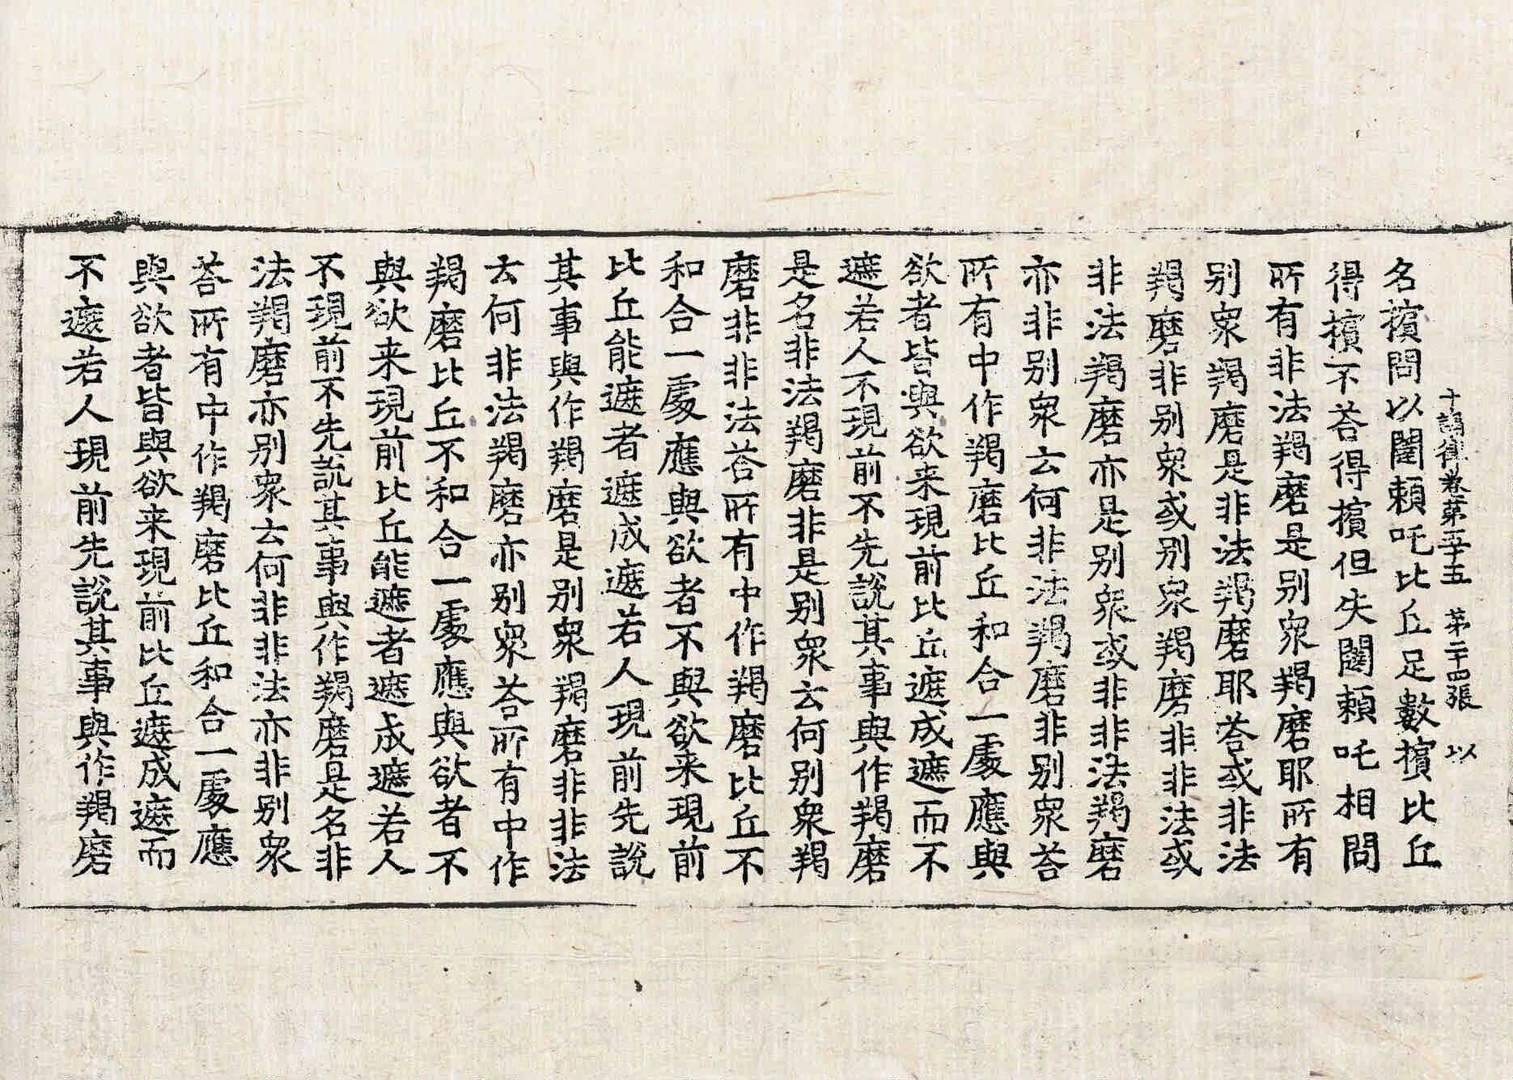 十誦律卷第五十五 第二十四張 以
名擯問以闥賴吒比丘足數擯比丘
得擯不荅得擯但失闥賴吒相問
所有非法羯磨是別衆羯磨耶所有
別衆羯磨是非法羯磨耶荅或非法
羯磨非別衆或別衆羯磨非非法或
非法羯磨亦是別衆或非非法羯磨
亦非別衆云何非法羯磨非別衆荅
所有中作羯磨比丘和合一處應與
欲者皆與欲来現前比丘遮成遮而不
遮若人不現前不先說其事與作羯磨
是名非法羯磨非是別衆云何別衆羯
磨非非法荅所有中作羯磨比丘不
和合一處應與欲者不與欲来現前
比丘能遮者遮成遮若人現前先說
其事與作羯磨是別衆羯磨非非法
云何非法羯磨亦別衆荅所有中作
羯磨比丘不和合一處應與欲者不
與欲来現前比丘能遮者遮成遮若人
不現前不先說其事與作羯磨是名非
法羯磨亦別衆云何非非法亦非別衆
荅所有中作羯磨比丘和合一處應
與欲者皆與欲来現前比丘遮成遮而
不遮若人現前先說其事與作羯磨